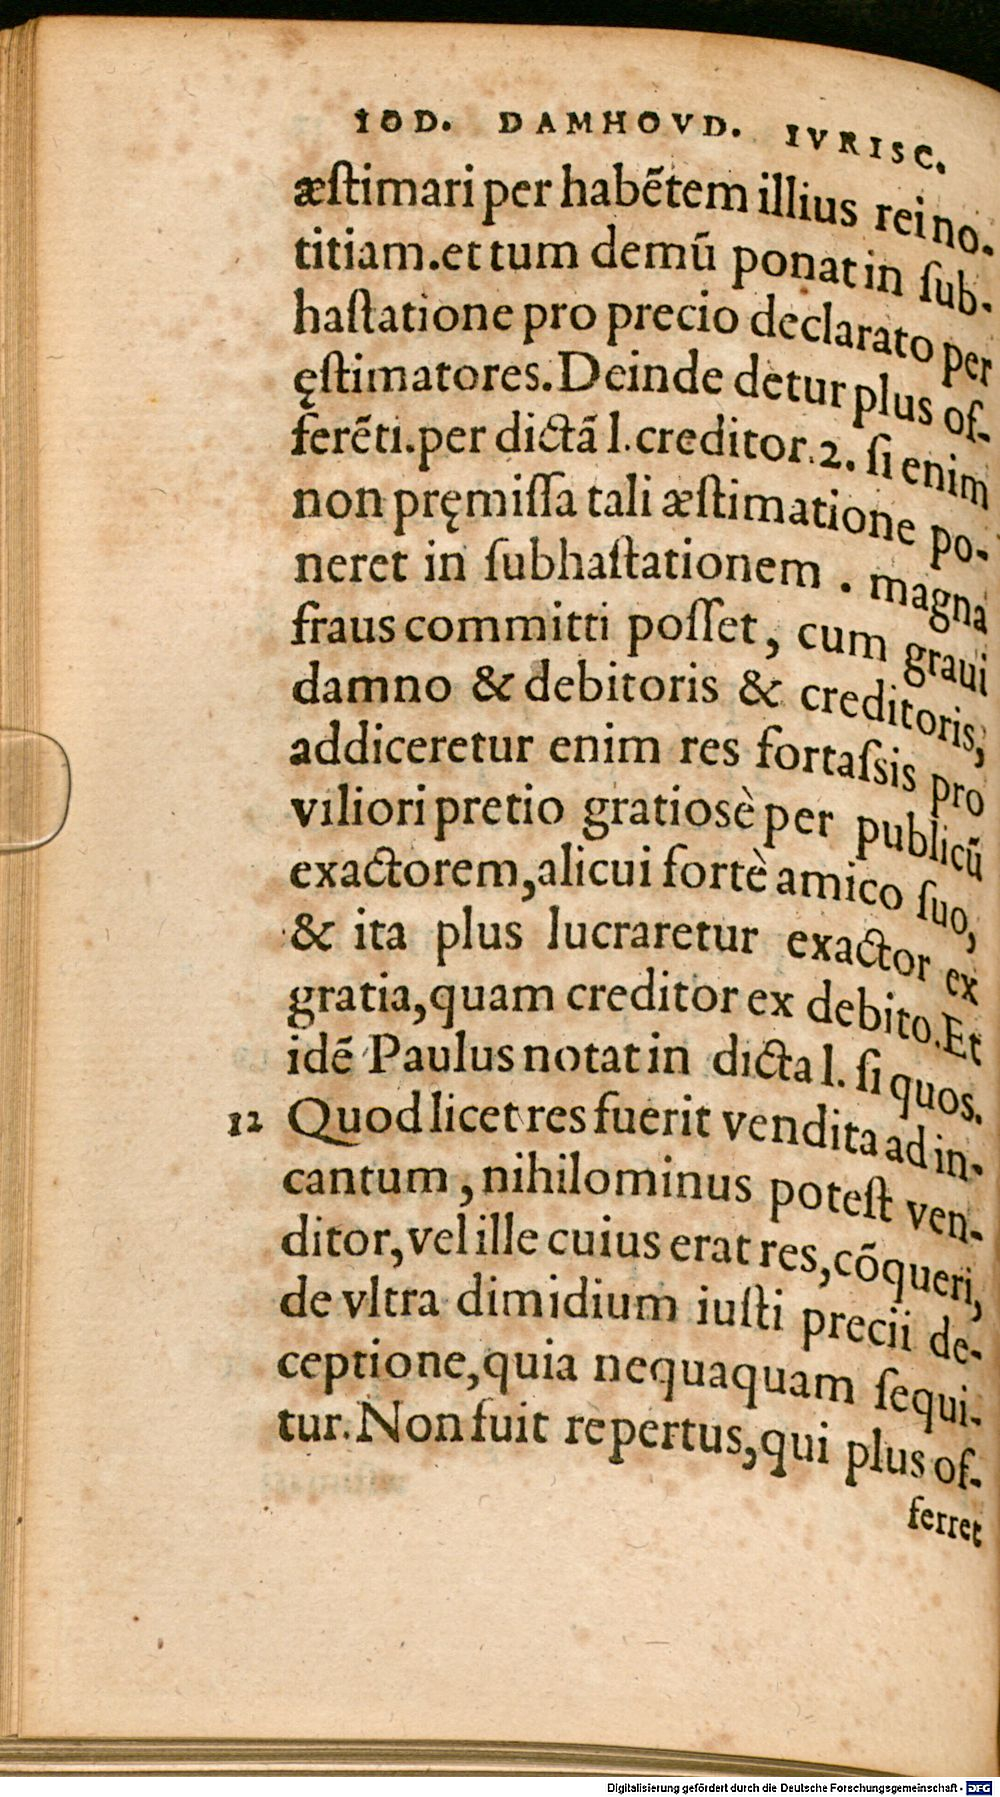 IOD. DAMHOVD. IVRISC.
æſtimari per habētem illius rei no-
titiam.et tum demū ponat in ſub-
haſtatione pro precio declarato per
ęſtimatores. Deinde detur plus of-
ferēti.per dictā l.creditor.2. ſi enim
non pręmiſſa tali æſtimatione po-
neret in ſubhaſtationem . magna
fraus committi poſſet, cum graui
damno & debitoris & creditoris,
addiceretur enim res fortaſsis pro
viliori pretio gratiosè per publicū
exactorem,alicui fortè amico ſuo,
& ita plus lucraretur exactor ex
gratia,quam creditor ex debito.Et
idē Paulus notat in dicta l. ſi quos.
12 Quod licet res fuerit vendita ad in-
cantum , nihilominus poteſt ven-
ditor,vel ille cuius erat res,cōqueri,
de vltra dimidium iuſti precii de-
ceptione,quia nequaquam ſequi-
tur. Non fuit repertus,qui plus of-
ferret
Digitalisierung gefördert durch die Deutsche Forschungsgemeinschaft - DFG